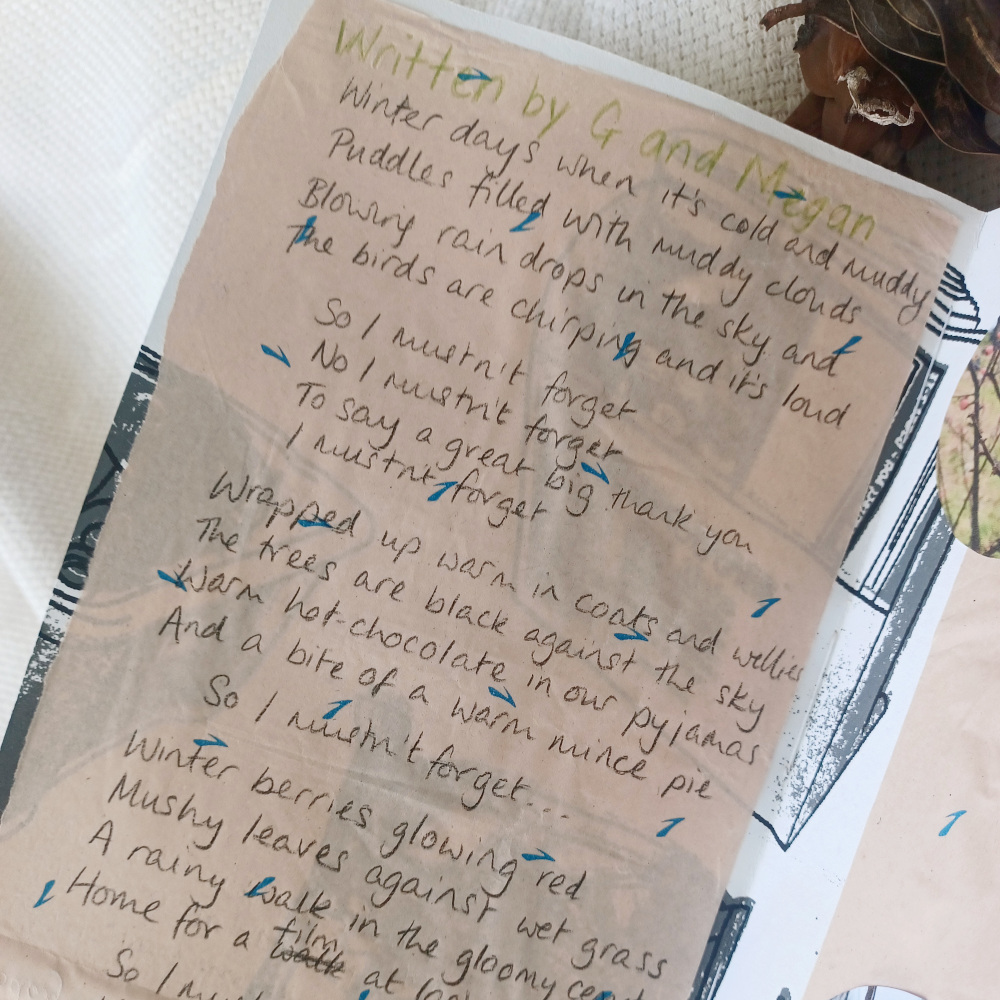 Written by G and Megan
Winter days when it's cold and muddy
Puddles filled with muddy clouds
Blowing rain drops in the sky and
The birds are chirping and it's loud
So I mustn't forget
No I mustn't forget
To say a great big thank you
I mustnt forget
Wrapped up warm in coats and wellies
The trees are black against the sky
Warm hot-chocolate in our pyjamas
And a bite of a warm mince pie
So I mustn't forget...
Winter berries glowing red
Mushy leaves against wet grass
A rainy walk in the gloomy
Home for a film at
So I